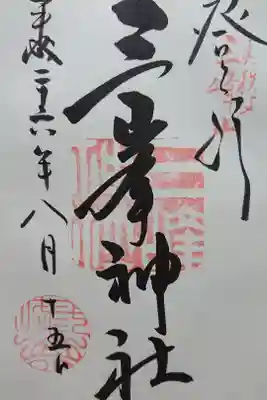 登拝
三峯神社
平成二十六年八月
十五日